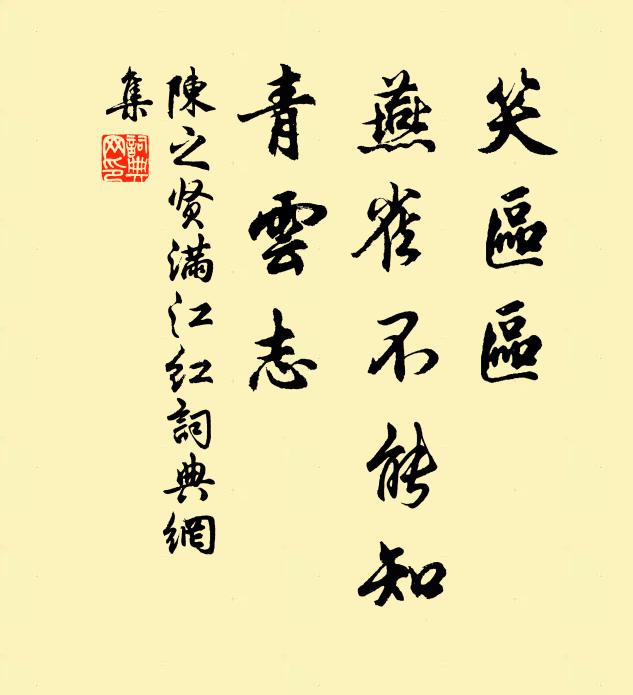 笑區區
燕雀不能知
青雲志
陳之贤滿江红詞典網
集
詞典網印